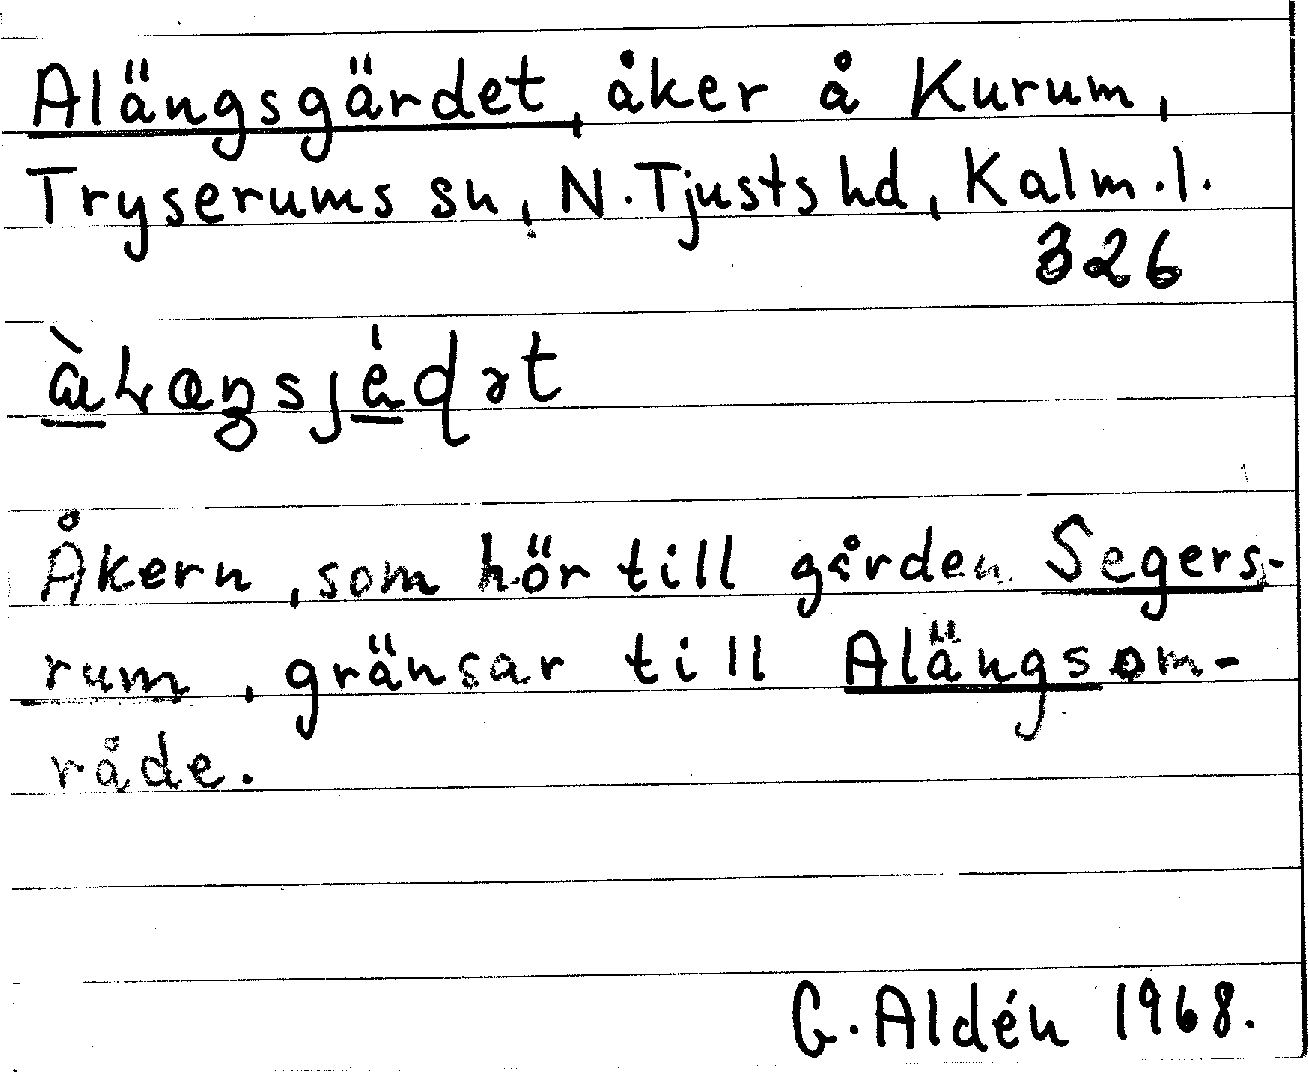 Alängsgärdet, åker å Kurum,
Tryserums sn, N. Tjusts hd, Kalm. l.
326
Åkern, som hör till gården Segers-
rum, gränsar till Alängsom-
råde.
G. Aldén 1968.